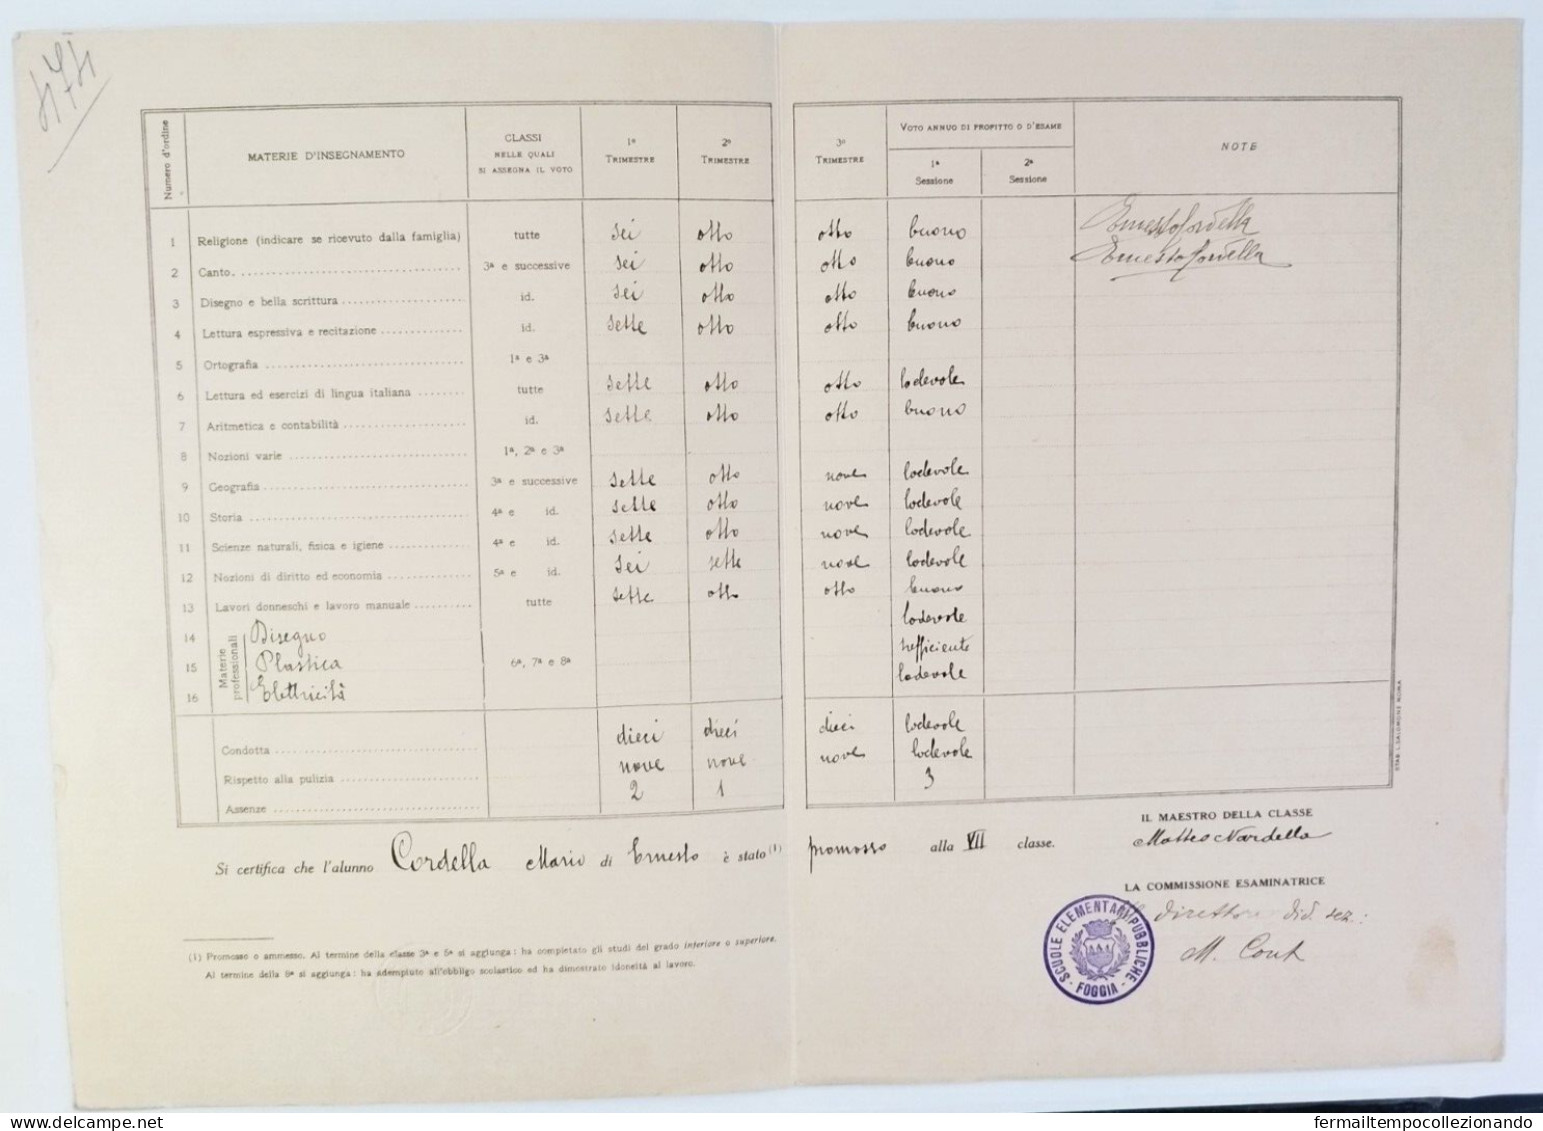 Numero d'ordine MATERIE D'INSEGNAMENTO CLASSI NELLE QUALI SI ASSEGNA IL VOTO 1º TRIMESTRE 2º TRIMESTRE 3º TRIMESTRE VOTO ANNUO DI PROFITTO O D'ESAME 1ª Sessione 2ª Sessione NOTE
1 Religione (indicare se ricevuto dalla famiglia) tutte sei otto otto buono Ernesto Cordella
2 Canto. 3ª e successive sei otto otto buono Ernesto Cordella
3 Disegno e bella scrittura id. sei otto otto buono
4 Lettura espressiva e recitazione id. sette otto otto buono
5 Ortografia 1ª e 3ª
6 Lettura ed esercizi di lingua italiana tutte sette otto otto lodevole
7 Aritmetica e contabilità id. sette otto otto buono
8 Nozioni varie 1ª, 2ª e 3ª
9 Geografia 3ª e successive sette otto nove lodevole
10 Storia 4ª e id. sette otto nove lodevole
11 Scienze naturali, fisica e igiene 4ª e id. sette otto nove lodevole
12 Nozioni di diritto ed economia 5ª e id. sei sette nove lodevole
13 Lavori donneschi e lavoro manuale tutte sette otto otto buono
Materie professionali
14 Disegno lodevole
15 Plastica 6ª, 7ª e 8ª sufficiente
16 Elettricità lodevole
Condotta dieci dieci dieci lodevole
Rispetto alla pulizia nove nove nove lodevole
Assenze 2 1 3
STAB. L. SALOMONE ROMA
Si certifica che l'alunno Cordella Mario di Ernesto è stato (1) promosso alla VII classe.
IL MAESTRO DELLA CLASSE
Matteo Nardella
LA COMMISSIONE ESAMINATRICE
Il direttore did. sez.:
M. Conf
SCUOLE ELEMENTARI PUBBLICHE - FOGGIA -
(1) Promosso o ammesso. Al termine della classe 3ª e 5ª si aggiunga: ha completato gli studi del grado inferiore o superiore.
Al termine della 8ª si aggiunga: ha adempiuto all'obbligo scolastico ed ha dimostrato idoneità al lavoro.
fermailtempocollezionando.com